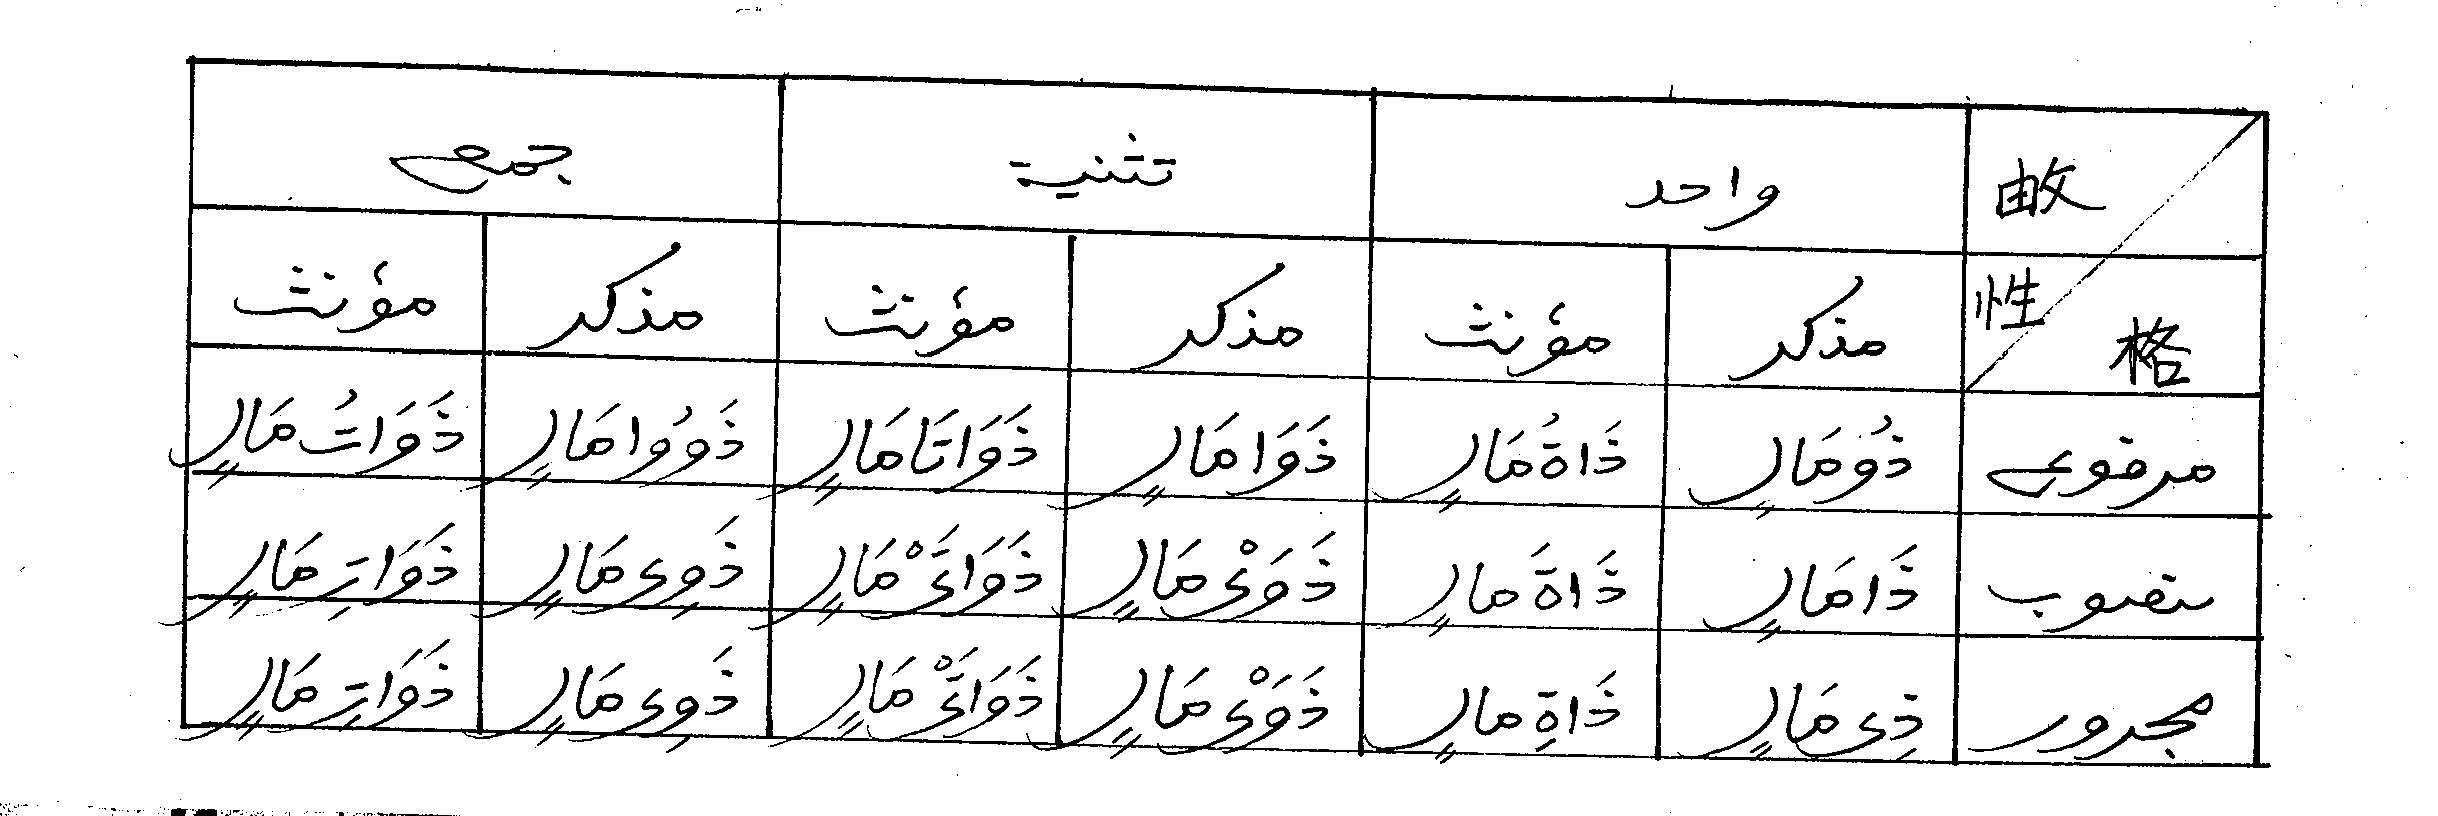 واحد تثنية جمع
性 格
مذكر مؤنث مذكر مؤنث مذكر مؤنث
مرفوع ذُومَالٍ ذَاةُمَالٍ ذَوَامَالٍ ذَوَاتَامَالٍ ذَوُوامَالٍ ذَوَاتُ مَالٍ
ذَامَالٍ ذَاةَ مالٍ ذَوَىْ مَالٍ ذَوَاتَىْ مَالٍ ذَوِى مَالٍ ذَوَاتِ مَالٍ
مجرور ذِى مَالٍ ذَاةِ مالٍ ذَوَىْ مَالٍ ذَوَاتَىْ مَالٍ ذَوِى مَالٍ ذَوَاتِ مَالٍ